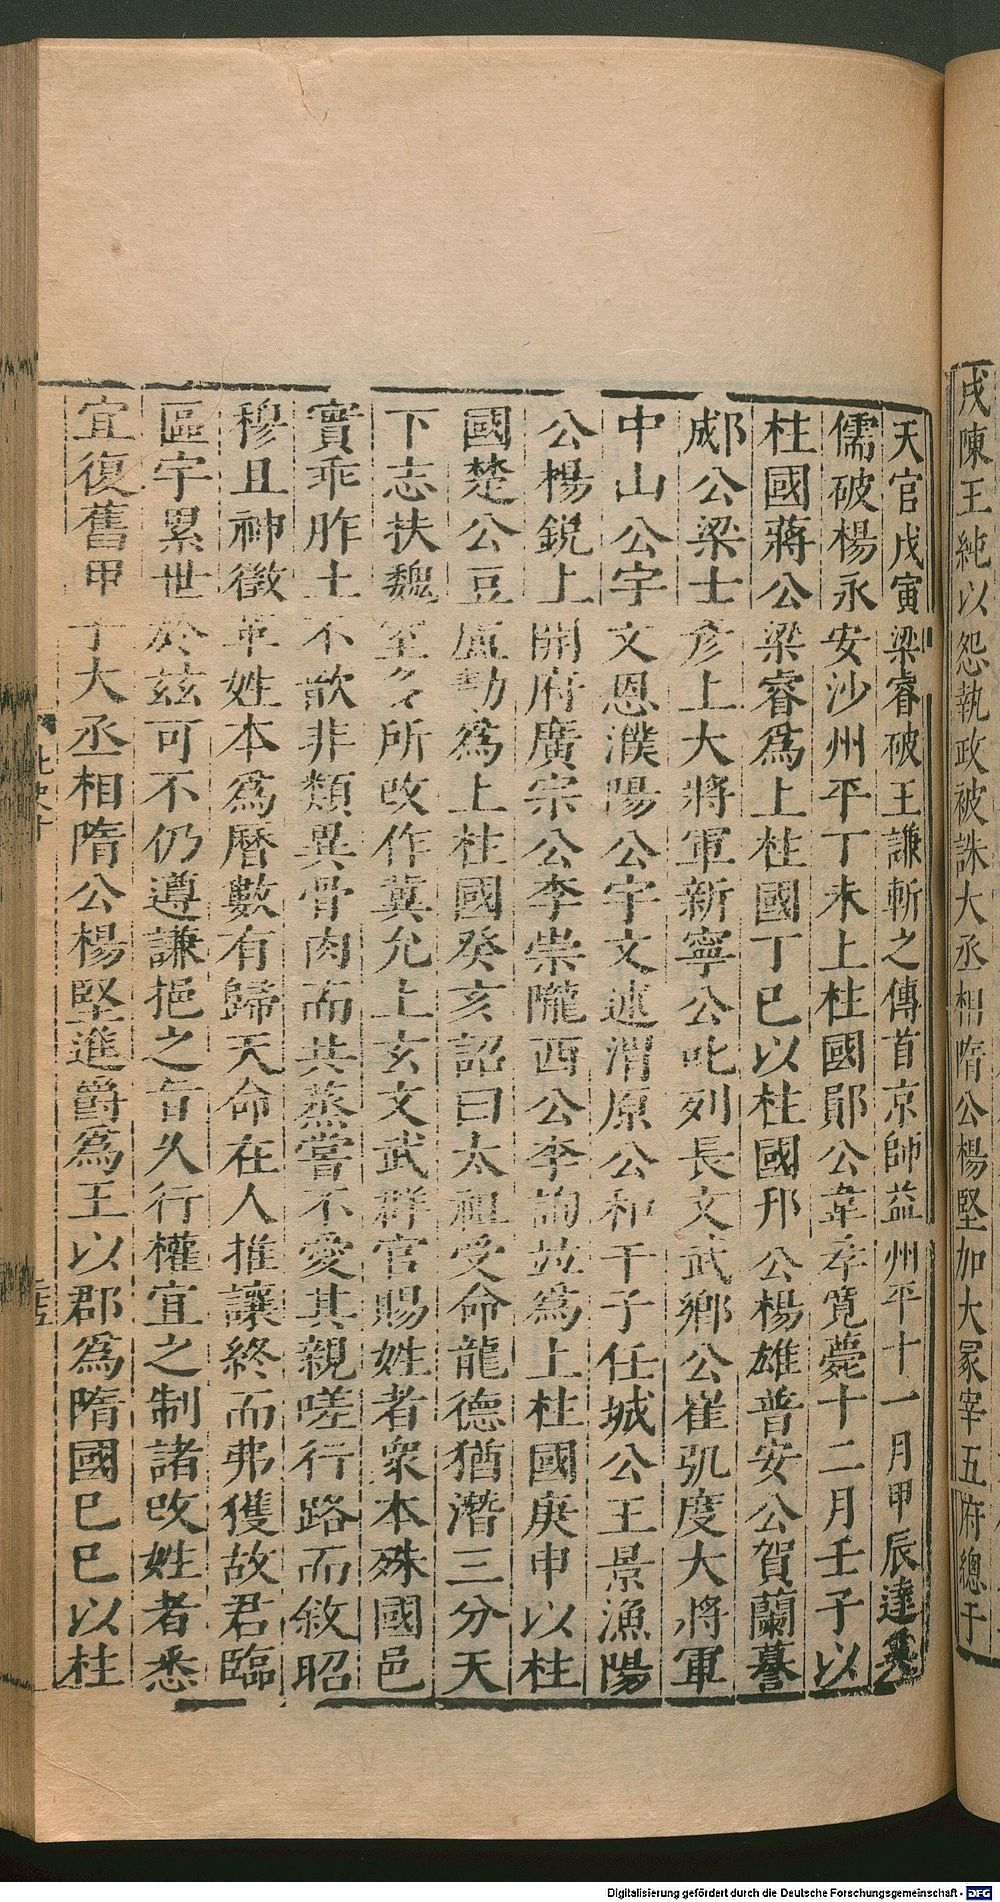 戌陳王純以怨執政被誅大丞相隋公楊堅加大冢宰五府總于
天官戊寅梁睿破王謙斬之傳首京師益州平十一月甲辰達奚
儒破楊永安沙州平丁未上柱國鄖公韋孝寛薨十二月壬子以
柱國蔣公梁睿爲上柱國丁巳以柱國邘公楊雄普安公賀蘭謩
郕公梁士彦上大將軍新寧公叱列長文武鄉公崔弘度大將軍
中山公宇文恩濮陽公宇文述渭原公和干子任城公王景漁陽
公楊鋭上開府廣宗公李崇隴西公李詢並爲上柱國庚申以柱
國楚公豆盧勣爲上柱國癸亥詔曰太祖受命龍德猶潛三分天
下志扶魏室多所改作冀允上玄文武群官賜姓者衆本殊國邑
實乖胙土不歆非類異骨肉而共蒸嘗不愛其親嗟行路而敘昭
穆且神徵革姓本爲曆數有歸天命在人推讓終而弗獲故君臨
區宇累世於茲可不仍遵謙挹之旨久行權宜之制諸改姓者悉
宜復舊甲子大丞相隋公楊堅進爵爲王以郡爲隋國巳巳以柱
北史十
Digitalisierung gefördert durch die Deutsche Forschungsgemeinschaft - DFG